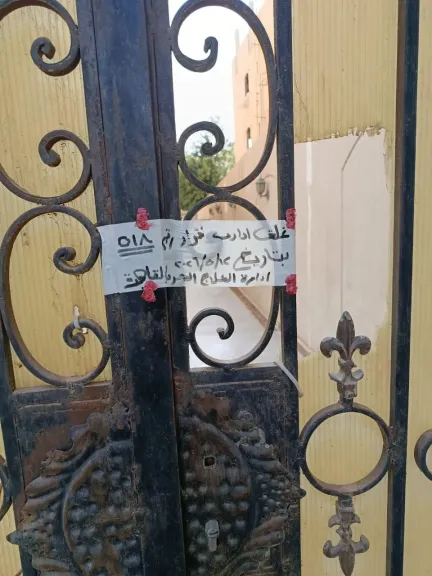 غلق اداري قرار رقم ٥١٨
بتاريخ ٢٠٢٦/٥/١٢
ادارة العلاج الحر بالقاهرة